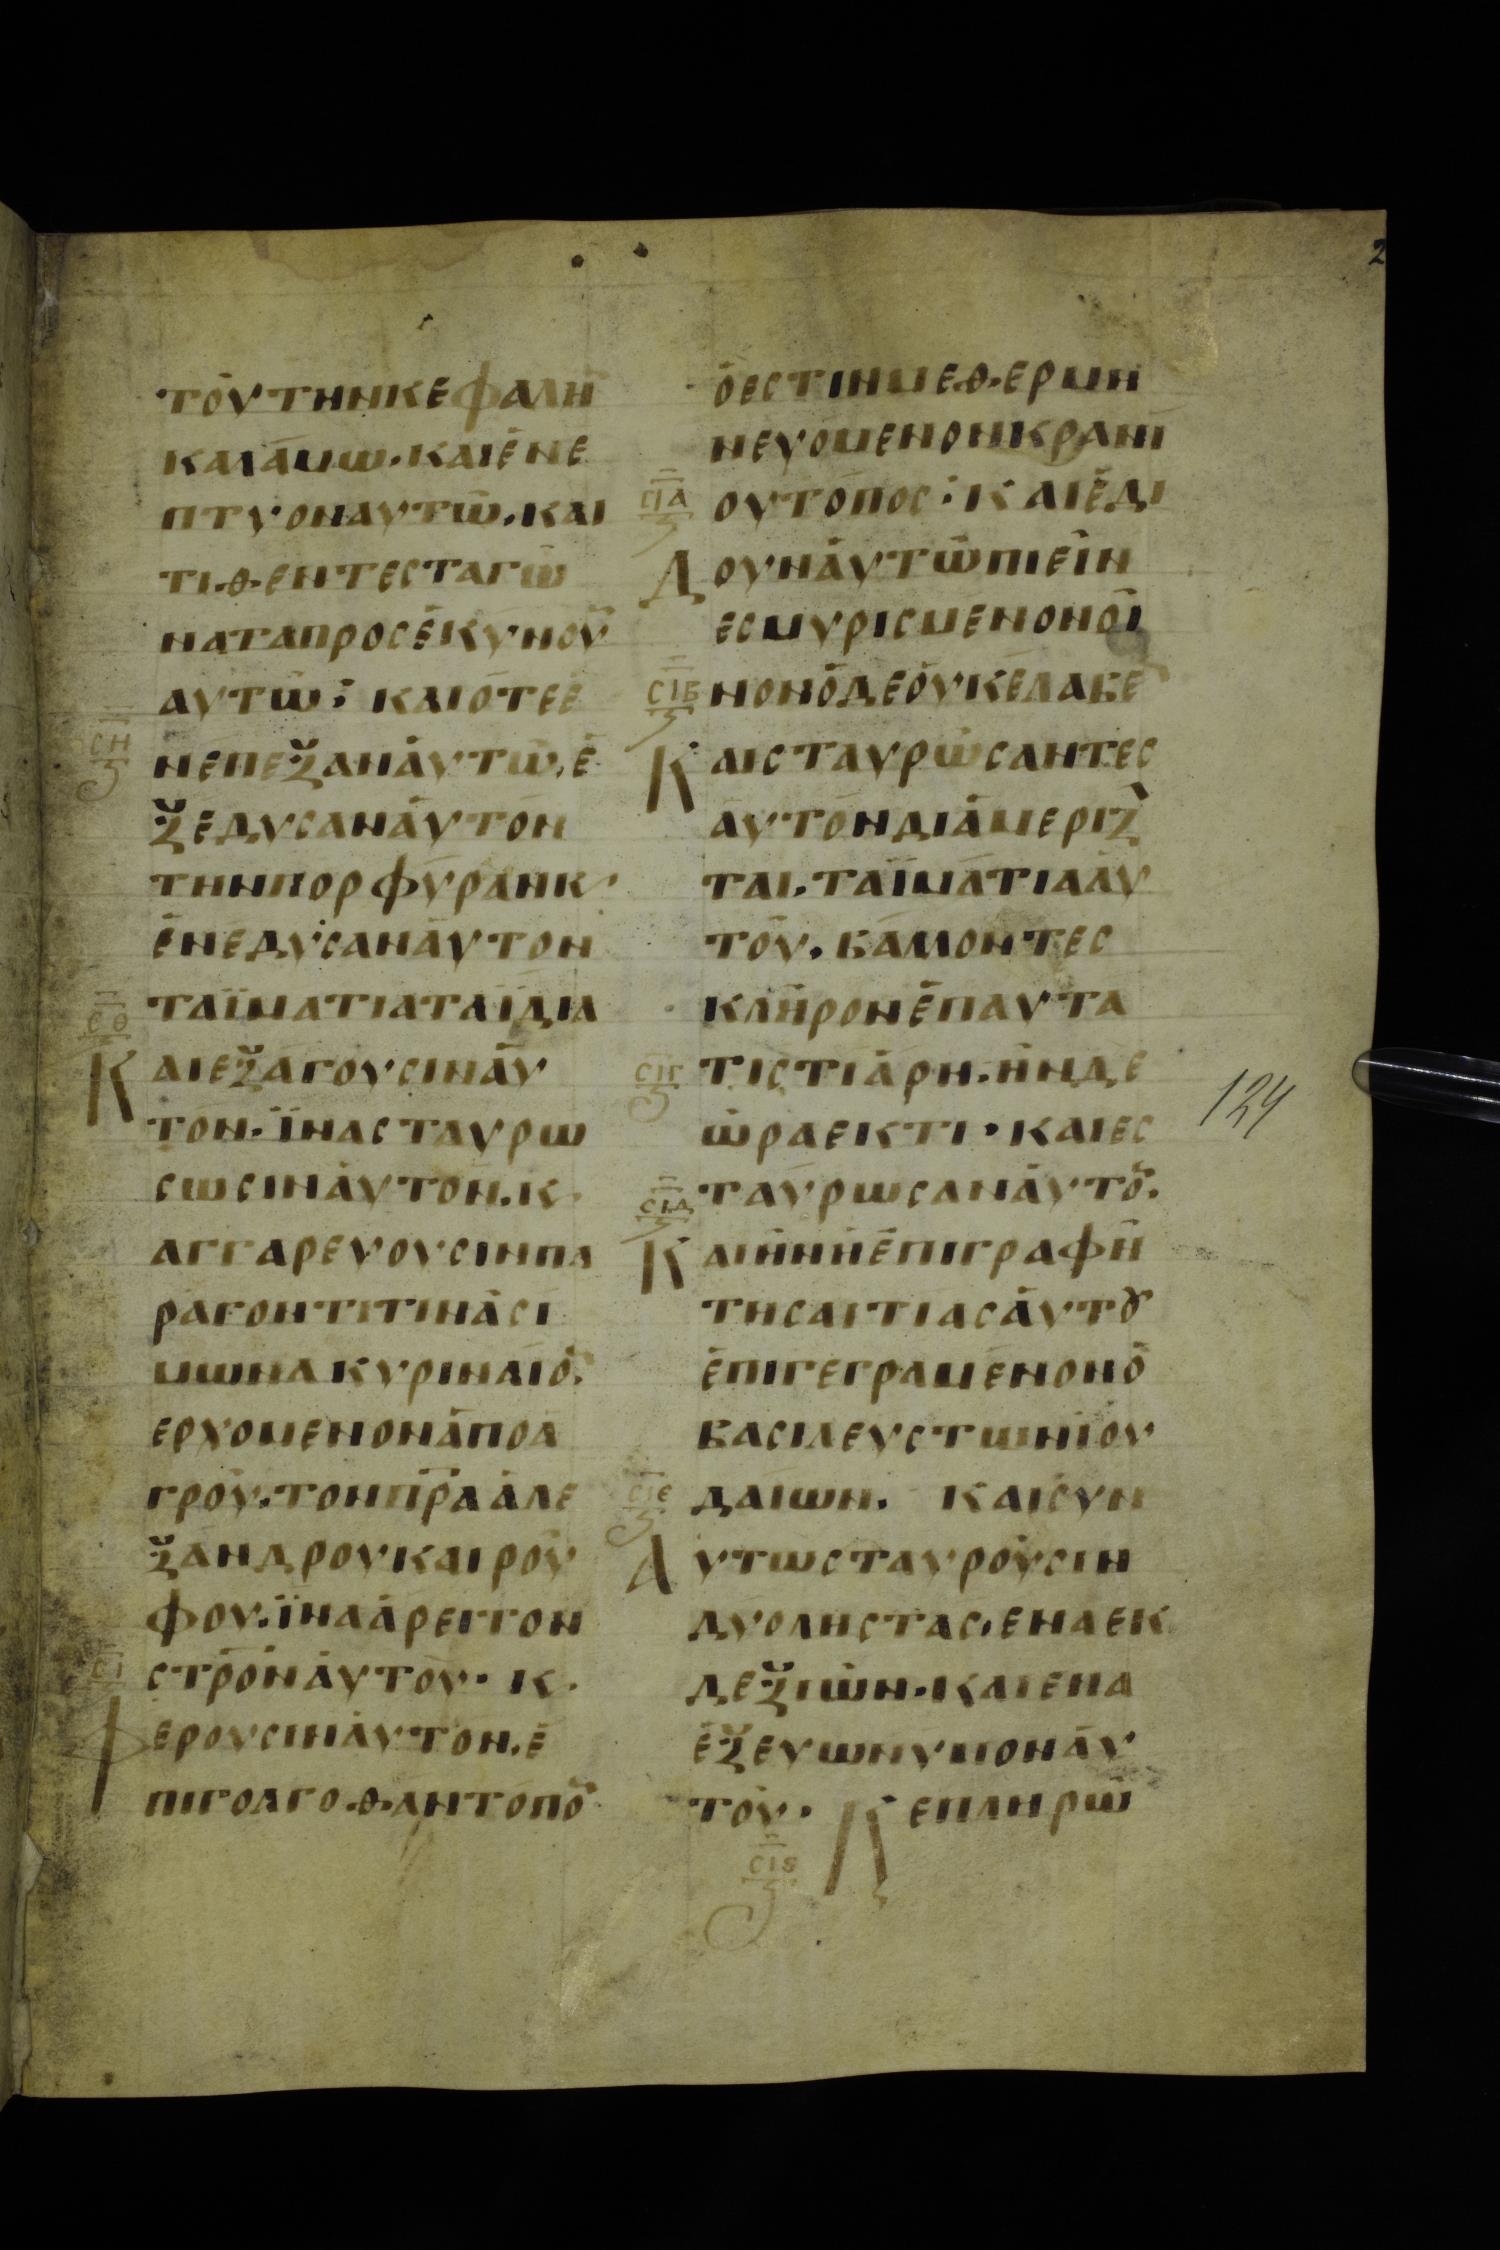 2
ΤΟΥΤΗΝΚΕΦΑΛΗ̅
ΚΑΛΑΜΩ·ΚΑΙΕΝΕ
ΠΤΥΟΝΑΥΤΩ·ΚΑΙ
ΤΙΘΕΝΤΕΣΤΑΓΩ̅
ΝΑΤΑΠΡΟΣΕΚΥΝΟΥ̅
ΑΥΤΩ: ΚΑΙΟΤΕΕ
ϹΗ
ΝΕΠΕΞΑΝΑΥΤΩ,Ε
ΞΕΔΥϹΑΝΑΥΤΟΝ
ΤΗΝΠΟΡΦΥΡΑΝΚ,
ΕΝΕΔΥϹΑΝΑΥΤΟΝ
ΤΑΪΜΑΤΙΑΤΑΪΔΙΑ
ϹΘ
ΚΑΙΕΞΑΓΟΥϹΙΝΑΥ
ΤΟΝ·ΪΝΑϹΤΑΥΡΩ
ϹΩϹΙΝΑΥΤΟΝ.Κ
ΑΓΓΑΡΕΥΟΥϹΙΝΠΑ
ΡΑΓΟΝΤΙΤΙΝΑϹΙ
ΜΩΝΑΚΥΡΙΝΑΙΟ̅.
ΕΡΧΟΜΕΝΟΝΑΠΟΑ
ΓΡΟΥ.ΤΟΝΠ̅Ρ̅ΑΑΛΕ
ΞΑΝΔΡΟΥΚΑΙΡΟΥ
ΦΟΥ.ΪΝΑΑΡΕΙΤΟΝ
ϹΙ
ϹΤΡ̅Ο̅ΝΑΥΤΟΥ· Κ.
ΦΕΡΟΥϹΙΝΑΥΤΟΝ.Ε
ΠΙΓΟΛΓΟΘΑΝΤΟΠΟ̅
ΟΕϹΤΙΝΜΕΘΕΡΜΗ
ΝΕΥΟΜΕΝΟΝΚΡΑΝΙ
ϹΙΑ
ΟΥΤΟΠΟϹ: ΚΑΙΕΔΙ
ΔΟΥΝΑΥΤΩΠΙΕΙΝ
ΕϹΜΥΡΙϹΜΕΝΟΝΟΙ
ϹΙΒ
ΝΟΝΟΔΕΟΥΚΕΛΑΒΕ
ΚΑΙϹΤΑΥΡΩϹΑΝΤΕϹ
ΑΥΤΟΝΔΙΑΜΕΡΙΖ
ΤΑΙ.ΤΑΪΜΑΤΙΑΑΥ
ΤΟΥ.ΒΑΛΛΟΝΤΕϹ
ΚΛΗΡΟΝΕΠΑΥΤΑ
ϹΙΓ
ΤΙϹΤΙΑΡΗ.ΗΝΔΕ
ΩΡΑΕΚΤΙ·ΚΑΙΕϹ
124
ΤΑΥΡΩϹΑΝΑΥΤΟ̅.
ϹΙΔ
ΚΑΙΗΝΗΕΠΙΓΡΑΦΗ
ΤΗϹΑΙΤΙΑϹΑΥΤȢ
ΕΠΙΓΕΓΡΑΜΕΝΟΝΟ
ΒΑϹΙΛΕΥϹΤΩΝΙΟΥ
ϹΙΕ
ΔΑΙΩΝ. ΚΑΙϹΥΝ
ΑΥΤΩϹΤΑΥΡΟΥϹΙΝ
ΔΥΟΛΗϹΤΑϹ.ΕΝΑΕΚ
ΔΕΞΙΩΝ·ΚΑΙΕΝΑ
ΕΞΕΥΩΝΥΜΟΝΑΥ
ΤΟΥ· Κ ΕΠΛΗΡΩ
ϹΙϚ